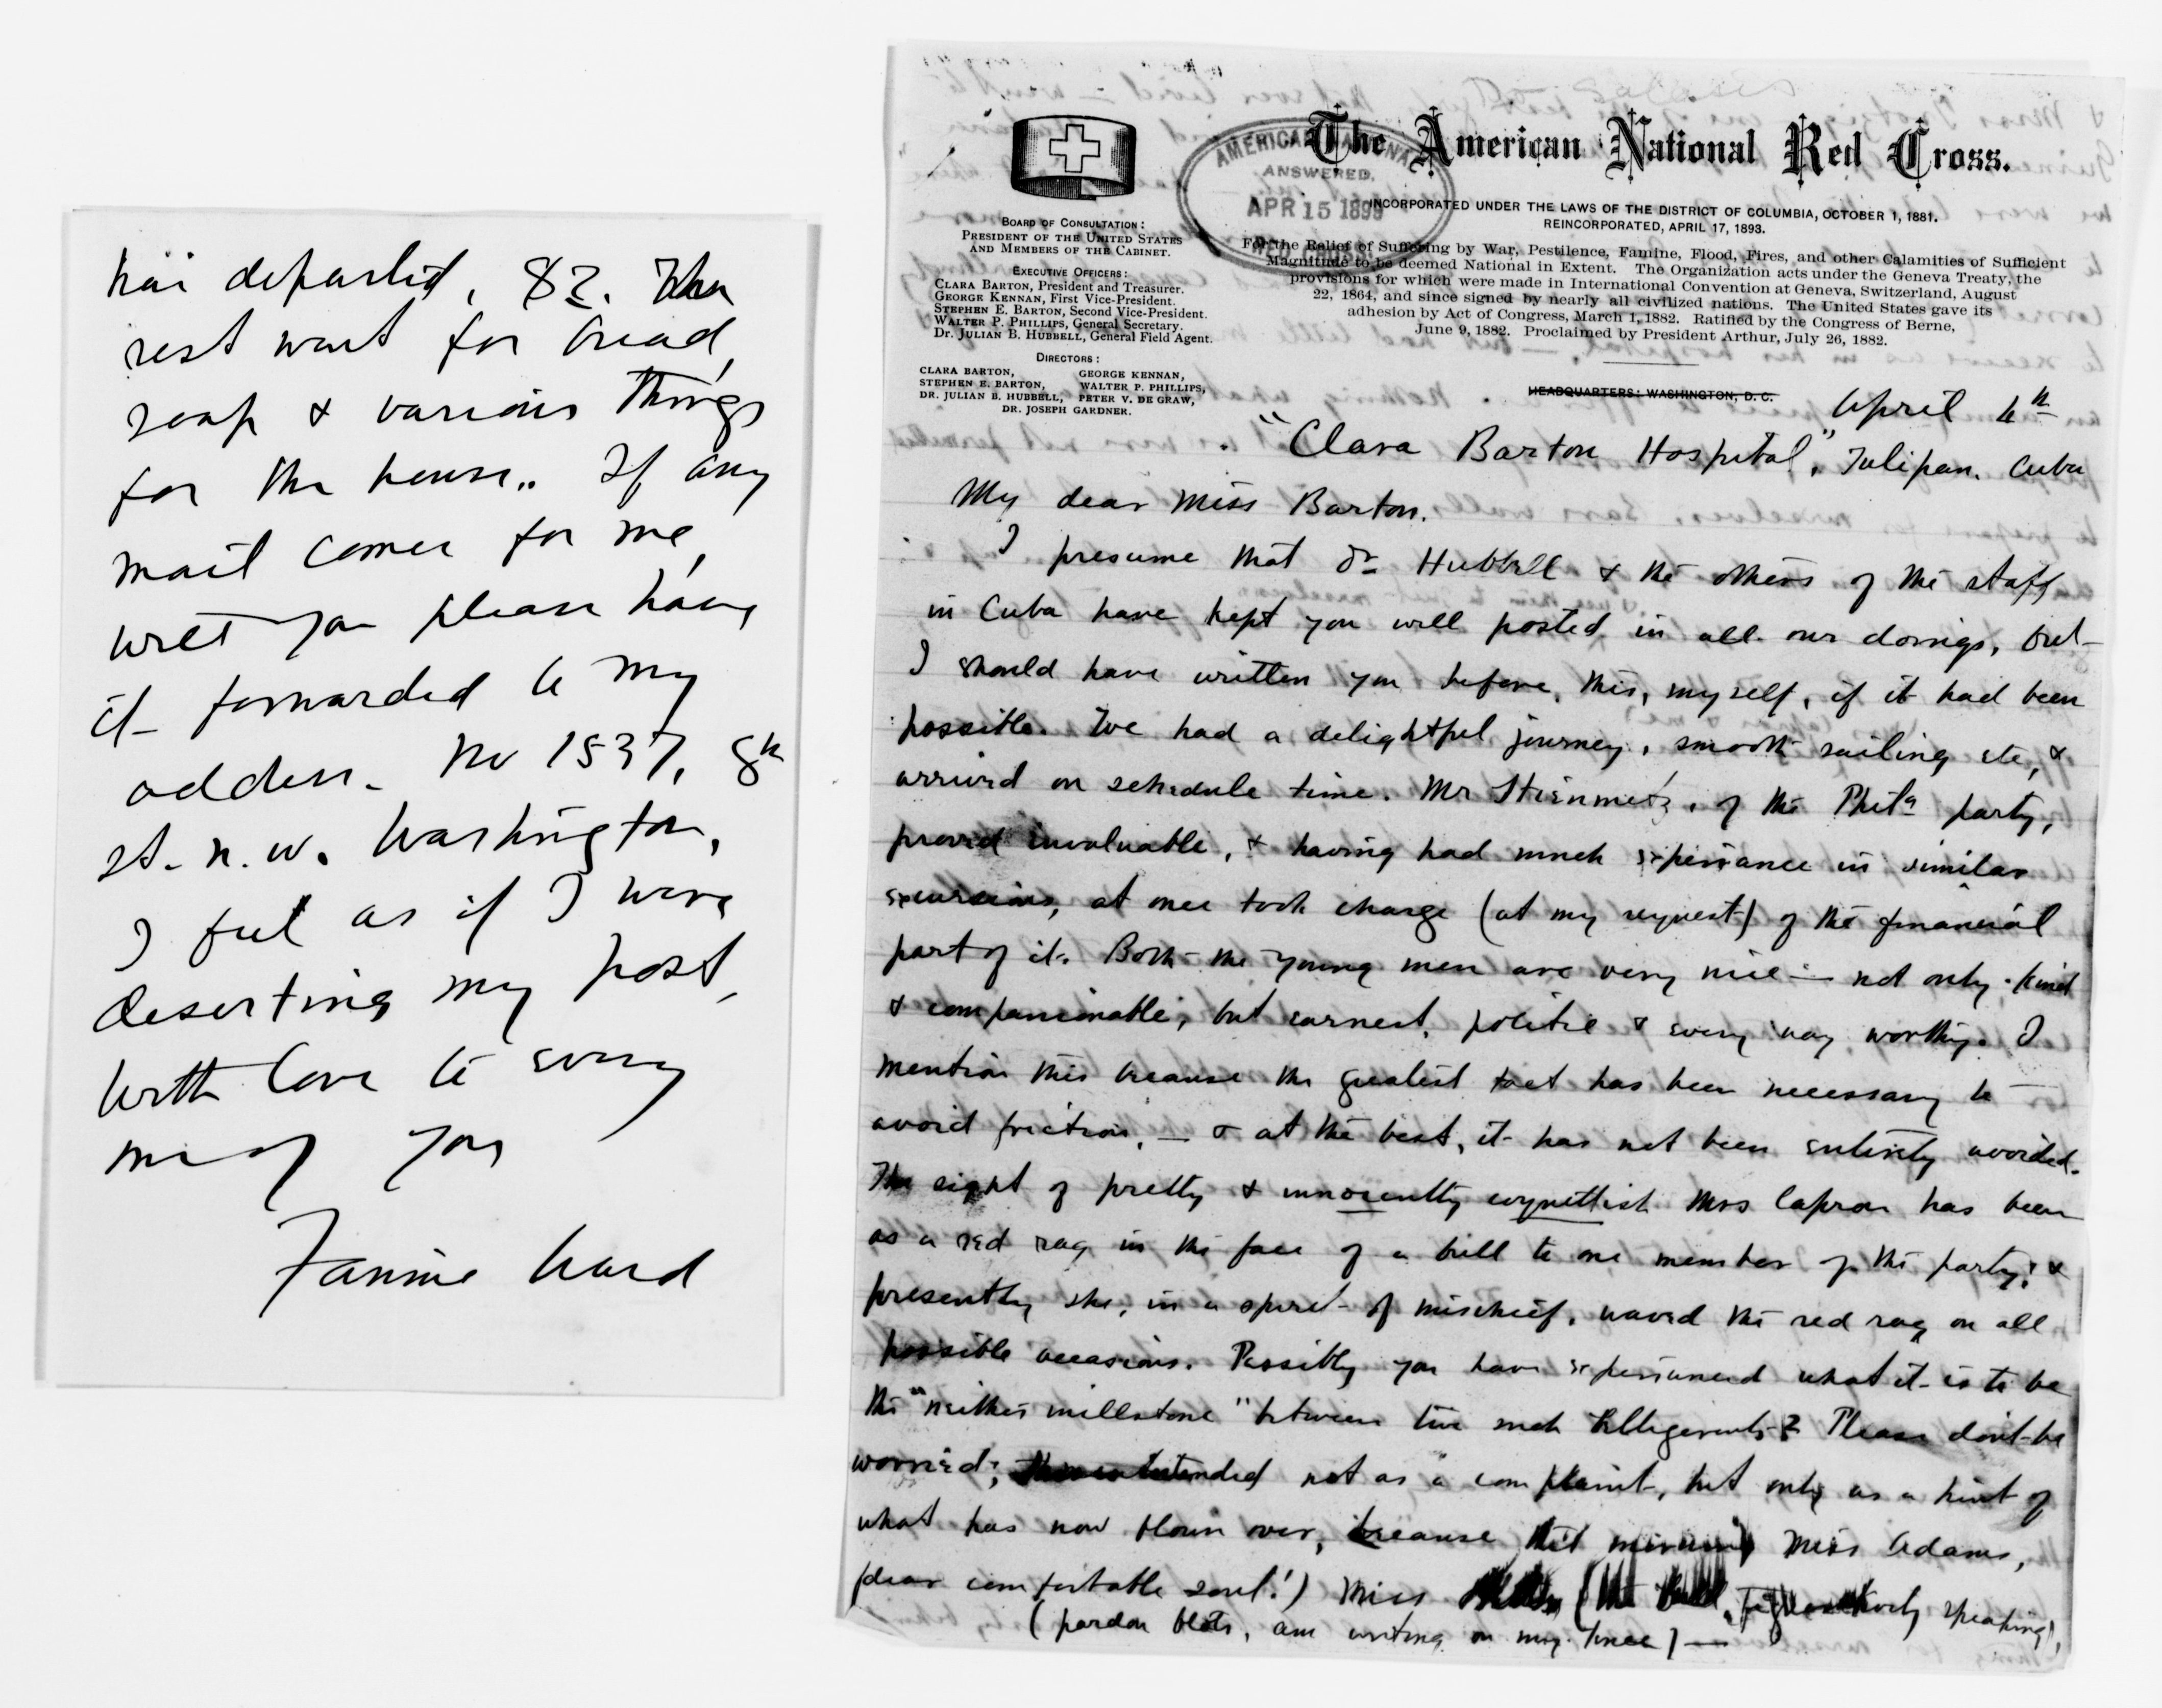 has departed, $2. The
rest went for bread,
soap & various things
for the house.. If any
mail comes for me,
will you please have
it forwarded to my
address. No 1537, 8th
st. n. w. Washington,
I feel as if I were
deserting my post,
With love to every
one of you
Fannie Ward
AMERICAN NATIONAL
ANSWERED,
APR 15 1899
The American National Red Cross.
INCORPORATED UNDER THE LAWS OF THE DISTRICT OF COLUMBIA, OCTOBER 1, 1881.
REINCORPORATED, APRIL 17, 1893.
For the Relief of Suffering by War, Pestilence, Famine, Flood, Fires, and other Calamities of Sufficient
Magnitude to be deemed National in Extent. The Organization acts under the Geneva Treaty, the
provisions for which were made in International Convention at Geneva, Switzerland, August
22, 1864, and since signed by nearly all civilized nations. The United States gave its
adhesion by Act of Congress, March 1, 1882. Ratified by the Congress of Berne,
June 9, 1882. Proclaimed by President Arthur, July 26, 1882.
BOARD OF CONSULTATION:
PRESIDENT OF THE UNITED STATES
AND MEMBERS OF THE CABINET.
EXECUTIVE OFFICERS:
CLARA BARTON, President and Treasurer.
GEORGE KENNAN, First Vice-President.
STEPHEN E. BARTON, Second Vice-President.
WALTER P. PHILLIPS, General Secretary.
DR. JULIAN B. HUBBELL, General Field Agent.
DIRECTORS:
CLARA BARTON, GEORGE KENNAN,
STEPHEN E. BARTON, WALTER P. PHILLIPS,
DR. JULIAN B. HUBBELL, PETER V. DE GRAW,
DR. JOSEPH GARDNER.
HEADQUARTERS: WASHINGTON, D. C.
April
"Clara Barton Hospital," Tulipan. Cuba
My dear Miss Barton.
I presume that Dr Hubbell & the others of the staff
in Cuba have kept you well posted in all our doings, but
I should have written you before this, myself, if it had been
possible. We had a delightful journey, smooth sailing etc, &
arrived on schedule time. Mr Steinmetz, of the Phila party,
proved invaluable, & having had much experience in similar
excursions, at once took charge (at my request) of the financial
part of it. Both the young men are very nice — not only kind
& companionable, but earnest, polite & every way worthy. I
mention this because the greatest tact has been necessary to
avoid friction, — & at the best, it has not been entirely avoided.
The sight of pretty & innocently coquettish Mrs Capron has been
as a red rag in the face of a bull to one member of the party; &
presently she, in a spirit of mischief, waved the red rag on all
possible occasions. Possibly you have experienced what it is to be
the "neither millstone" between two such belligerents? Please don't be
worried; intended not as a complaint, but only as a hint of
what has now blown over, because Miss Adams,
(dear comfortable soul!) Miss (the bull, figuratively speaking),
(pardon blots, am writing on my knee) —